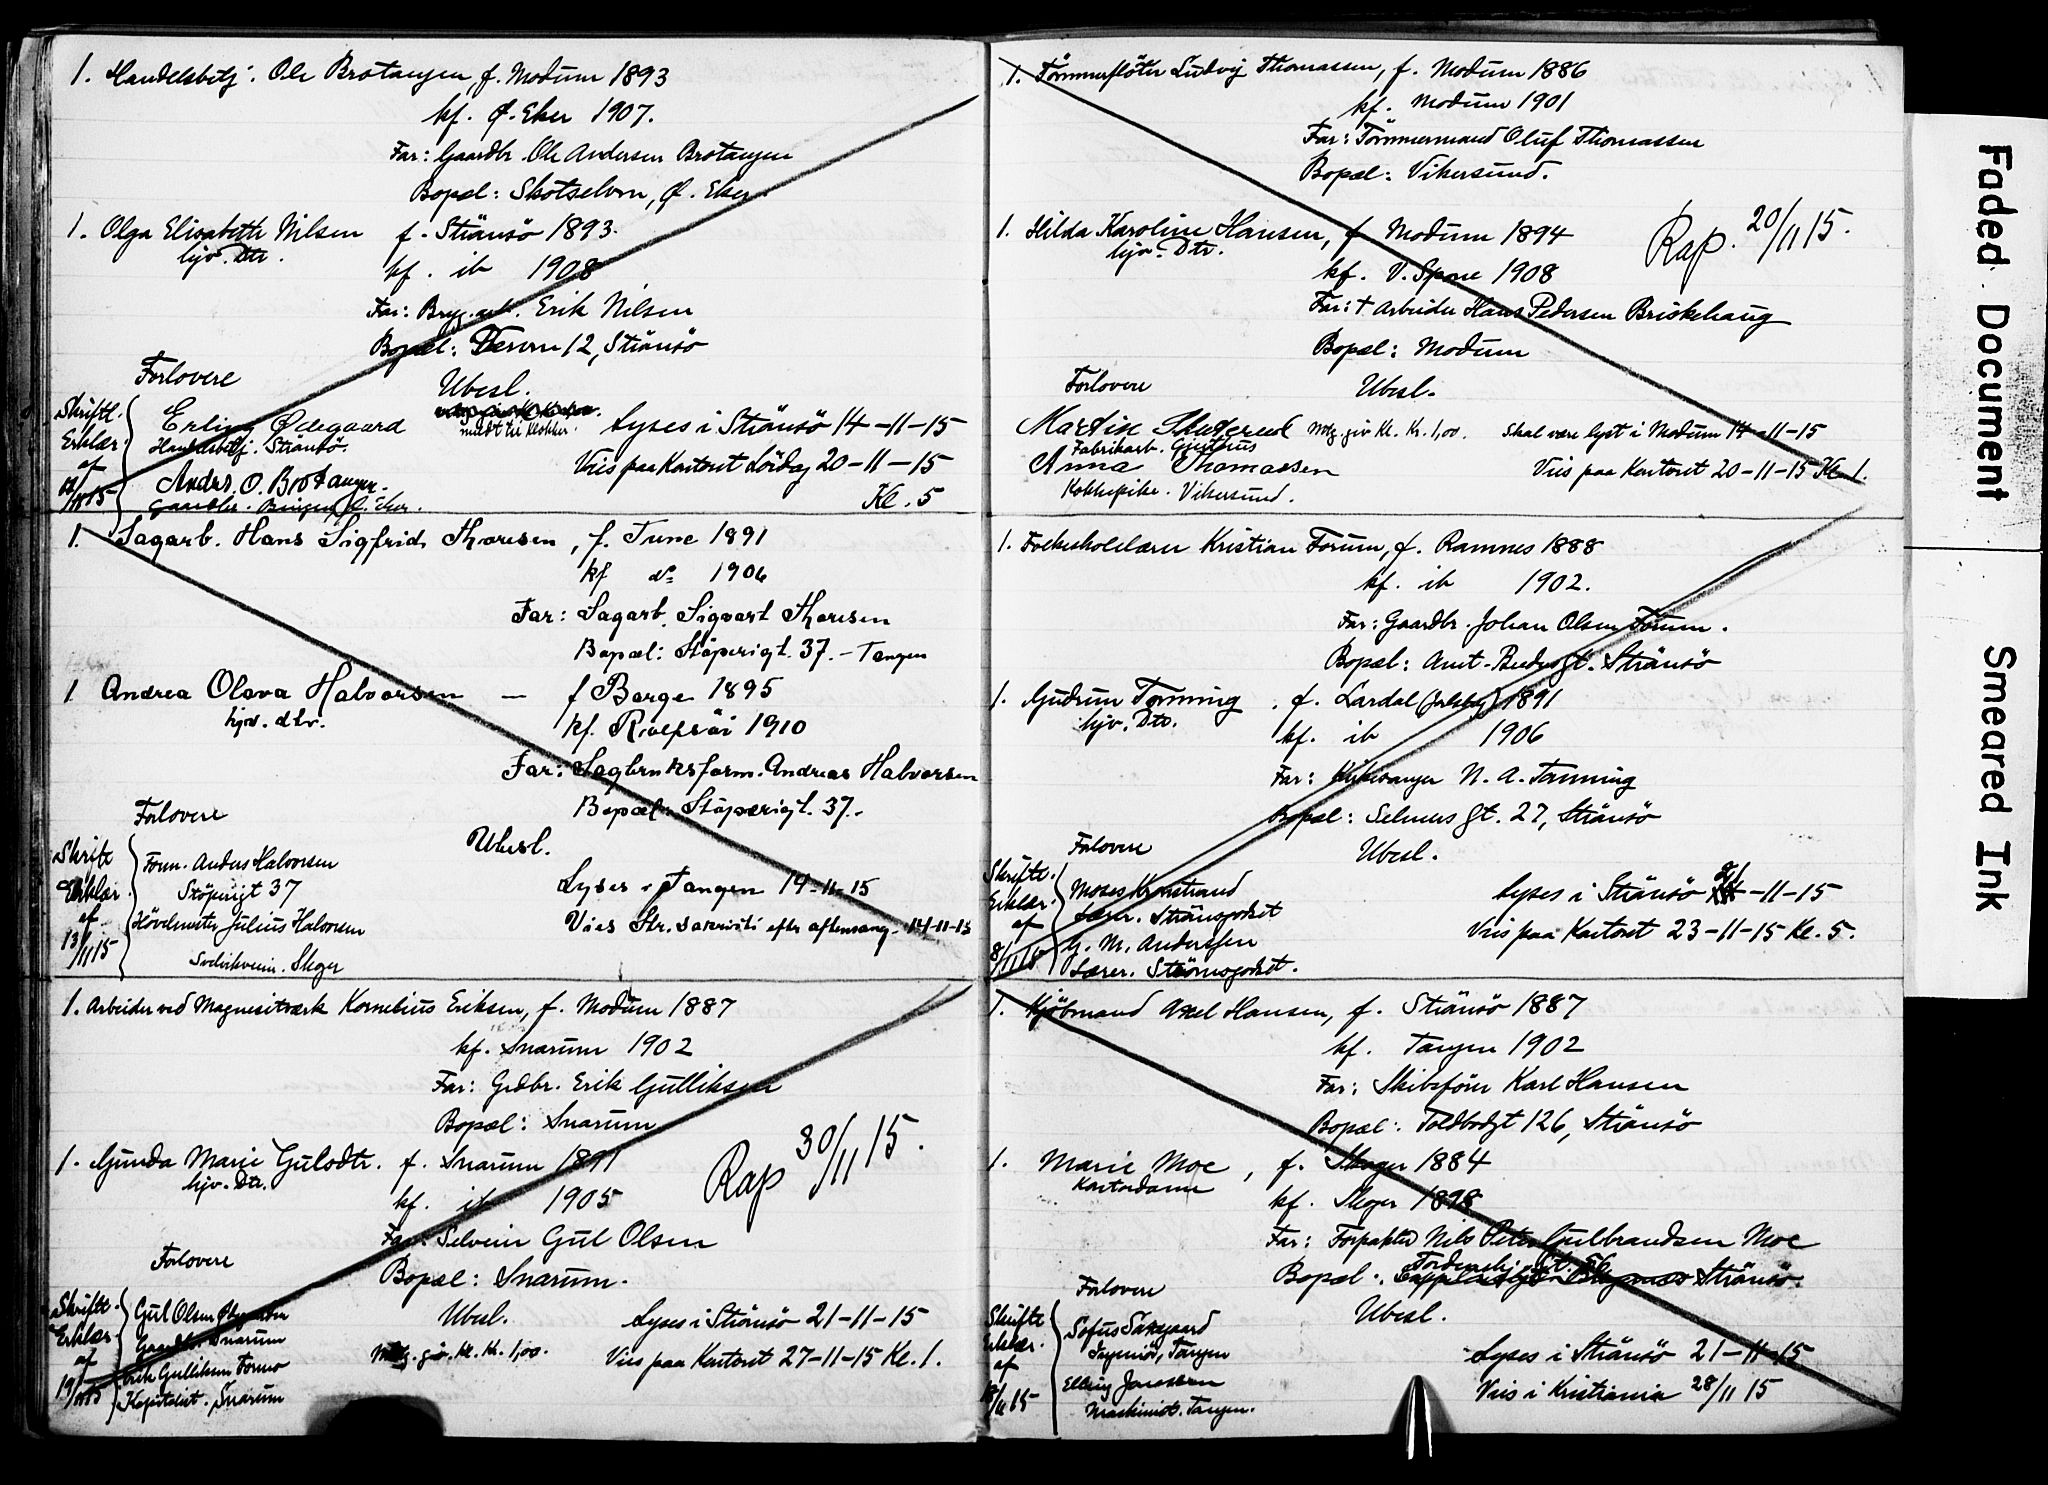 1. Handelsbetj. Ole Brotangen, f. Modum 1893
kf. Ø. Eker 1907.
Far: Gaardbr. Ole Andersen Brotangen
Bopæl: Skotselven, Ø. Eker
1. Olga Elisabeth Nilsen f. Strømsö 1893.
hjv. Dtr. kf. ib 1908
Far: Bryg.arb. Erik Nilsen
Bopæl: 12, Strømsö
Forlovere Ubesl.
Skriftl. Erklær. af 15
Erling Ødegaard meldt til Klokker. Lyses i Strømsö 14-11-15
Handelsbetj. Strømsö.
Anders. O. Brotangen. Vies paa Kontoret Lördag 20-11-15
Gaardbr. Bingen Ø. Eker. Kl. 5
1. Sagarb. Hans Sigfrid Thoresen, f. Tune 1891
kf do 1906
Far: Sagarb. Sigvart Thoresen
Bopæl: Stöperigt. 37. - Tangen
1 Andrea Olava Halvorsen — f Borge 1895
hjv. dtr. kf. Rolfsöi 1910
Far: Sagbruksform. Andreas Halvorsen
Bopæl: Stöperigt. 37.
Forlovere Ubesl.
Skrift Erklær. af 13/11 15
Form. Anders Halvorsen
Stöperigt 37 Lyses i Tangen 14-11-15
Hövlemester Julius Halvorsen Vies Str. sakristi efter aftensang. 14-11-15
Skoger
1. Arbeider ved Magnesitværk Kornelius Eriksen, f. Modum 1887
kf. Snarum 1902
Far: Grdbr. Erik Gulliksen
Bopæl: Snarum
1. Gunda Marie Gulsdtr. f. Snarum 1891 Rap 30/11 15.
hjv. Dtr. kf. ib 1905
Far: Selveier Gul Olsen
Forlovere
Bopæl: Snarum.
Skriftl. Erklær. af 19/11 15
Gul Olsen Ubesl. Lyses i Strømsö 21-11-15
Gaardbr. Snarum
Erik Gulliksen Formo Mdlg. giv. Kl. Kr. 1,00. Vies paa Kontoret 27-11-15 Kl. 1.
Kapitalist. Snarum
1. Tömmerflöter Ludvig Thomassen, f. Modum 1886
kf. Modum 1901
Far: Tömmermand Oluf Thomassen
Bopæl: Vikersund.
1. Hilda Karoline Hansen, f Modum 1894 Rap. 20/11 15.
hjv. Dtr. kf. V. Spone 1908
Far: † Arbeider Hans Pedersen Briskehaug
Bopæl: Modum
Forlovere Ubesl.
Martin Mdlg. giv Kl. Kr. 1,00. Skal være lyst i Modum 14-11-15
Fabrikarb. Geithus
Anna Thomassen Vies paa Kontoret 20-11-15 Kl. 1.
Kokkepike. Vikersund.
1. Folkeskolelærer Kristian Forum, f. Ramnes 1888
kf. ib 1902.
Far: Gaardbr. Johan Olsen Forum.
Bopæl: Strømsö
1. Gudrun Tonning, f. Lardal (Jarlsbg) 1891
hjv. Dtr. kf. ib 1906
Far: Kirkesanger N. A. Tonning
Bopæl: Selmers gt. 27, Strømsö
Forlovere Ubesl.
Skriftl. Erklær. af 8/11 15
Moses Kronstrand
Lærer. Strømsgodset Lyses i Strømsö 21-11-15
G. M. Anderssen Vies paa Kontoret 23-11-15 Kl. 5.
Lærer. Strömsgodset.
1. Kjöbmand Axel Hansen, f. Strømsö 1887
kf. Tangen 1902
Far: Skibsförer Karl Hansen
Bopæl: Toldbodgt 126, Strømsö
1. Marie Moe, f. Skoger 1884
Kontordame kf. Skoger 1898
Far: Forpakter Nils Peter Gulbrandsen Moe
Tordenskj. gt. 56
Bopæl. Strømsö.
Forlovere Ubesl.
Skriftl. Erklær. af 18/11 15
Sofus
Ingeniör, Tangen Lyses i Strømsö 21-11-15
Elling Vies i Kristiania 28/11 15
Maskinist. Tangen.
Faded Document
Smeared Ink